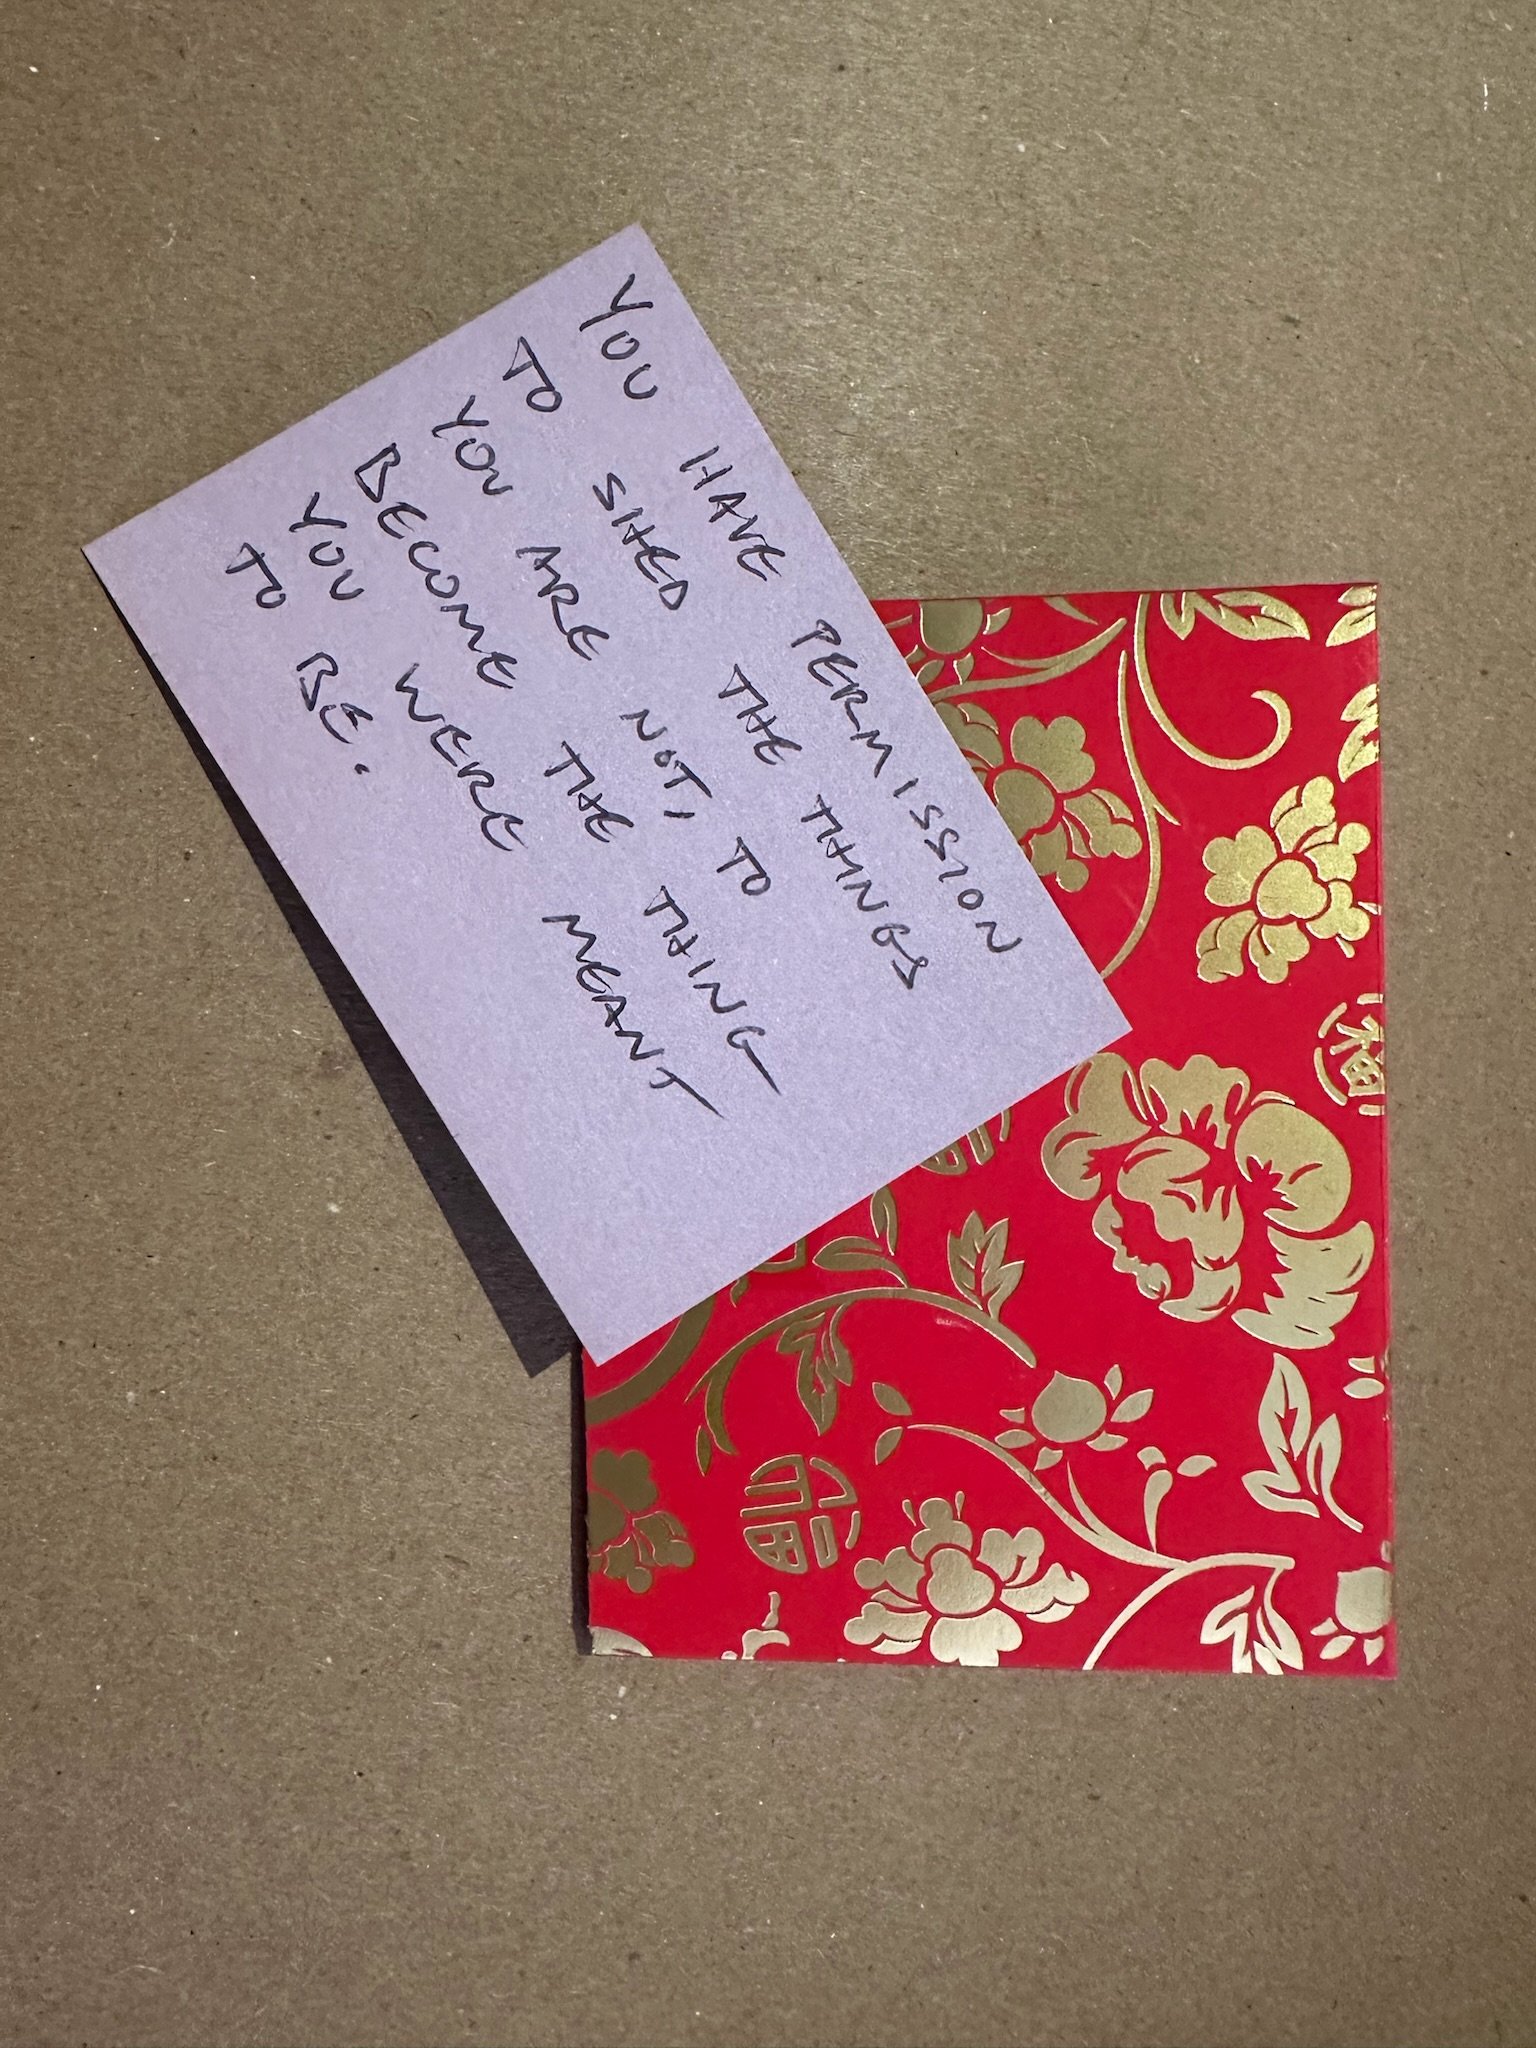 YOU HAVE PERMISSION
TO SHED THE THINGS
YOU ARE NOT, TO
BECOME THE THING
YOU WERE MEANT
TO BE.
福
福